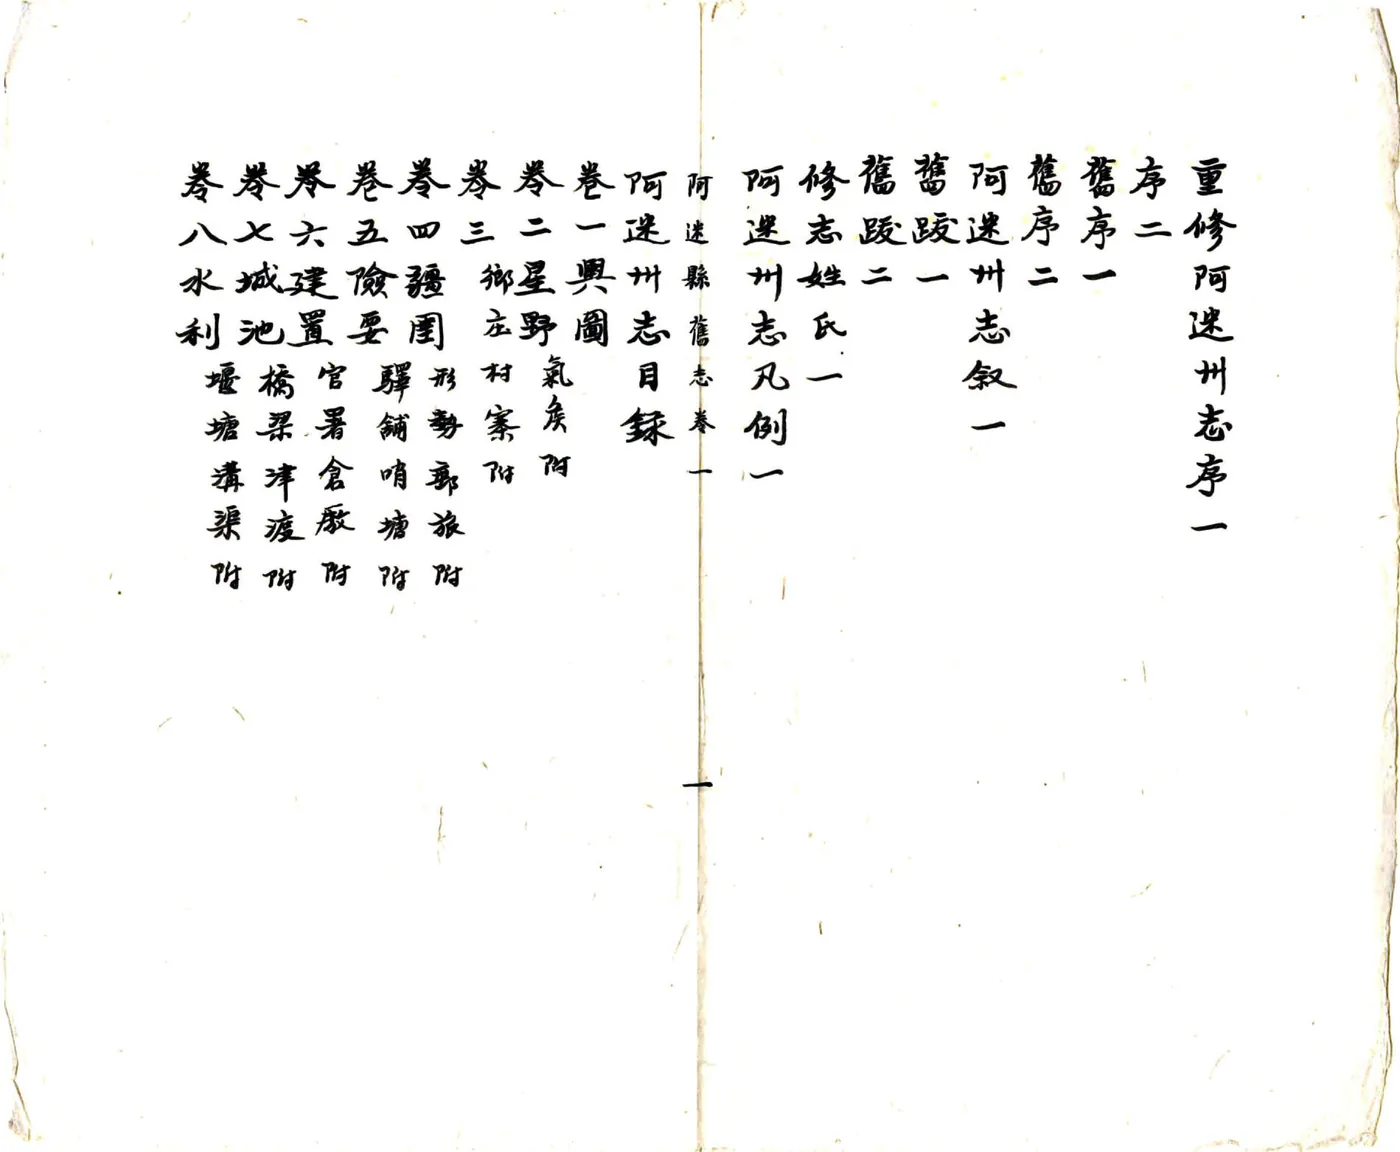 重修阿迷州志序一
序二
舊序一
舊序二
阿迷州志叙一
舊跋一
舊跋二
修志姓氏一
阿迷州志凡例一
阿迷縣舊志卷一
一
阿迷州志目録
卷一輿圖
卷二星野 氣候附
卷三 鄉庄村寨附
卷四疆圉 形勢郵旅附
卷五險要 驛舖哨塘附
卷六建置 官署倉廒附
卷七城池 橋梁津渡附
卷八水利 堰塘溝渠附